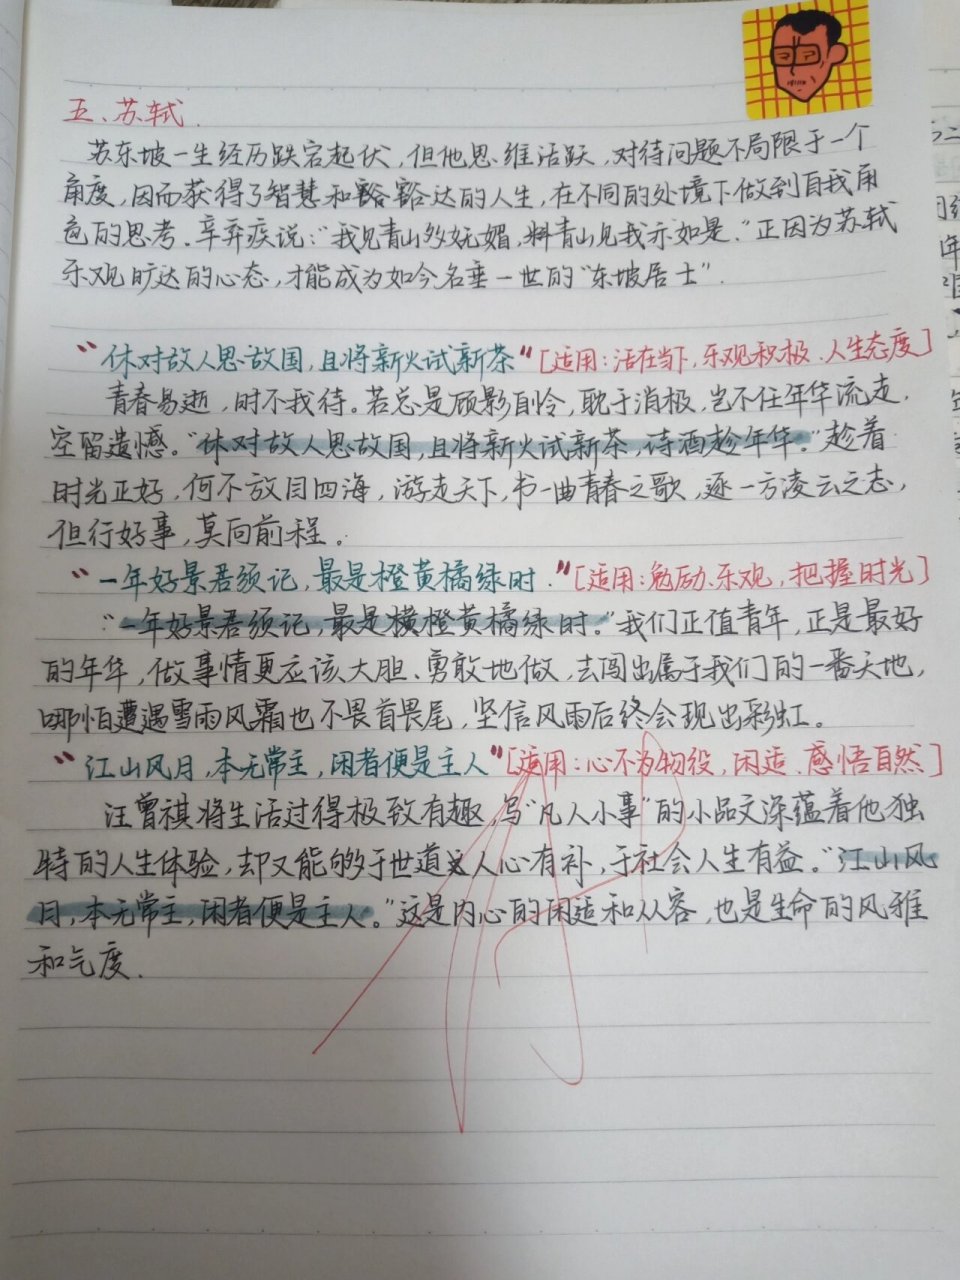 五、苏轼.
苏东坡一生经历跌宕起伏,但他思维活跃,对待问题不局限于一个
角度,因而获得了智慧和豁达的人生,在不同的处境下做到自我角
色的思考。辛弃疾说:"我见青山多妩媚,料青山见我亦如是."正因为苏轼
乐观旷达的心态,才能成为如今名垂一世的"东坡居士".
"休对故人思故国,且将新火试新茶"[适用:活在当下,乐观积极、人生态度]
青春易逝,时不我待。若总是顾影自怜,耽于消极,岂不任年华流走,
空留遗憾。"休对故人思故国,且将新火试新茶,诗酒趁年华。"趁着
时光正好,何不放目四海,游走天下,书一曲青春之歌,逐一方凌云之志,
但行好事,莫问前程。
"一年好景君须记,最是橙黄橘绿时."[适用:勉励、乐观,把握时光]
"一年好景君须记,最是橙黄橘绿时。"我们正值青年,正是最好
的年华,做事情更应该大胆、勇敢地做,去闯出属于我们的一番天地,
哪怕遭遇雪雨风霜也不畏首畏尾,坚信风雨后终会现出彩虹。
"江山风月,本无常主,闲者便是主人"[适用:心不为物役,闲适、感悟自然]
汪曾祺将生活过得极致有趣,写"凡人小事"的小品文深蕴着他独
特的人生体验,却又能够于世道人心有补,于社会人生有益。"江山风
月,本无常主,闲者便是主人。"这是内心的闲适和从容,也是生命的风雅
和气度.